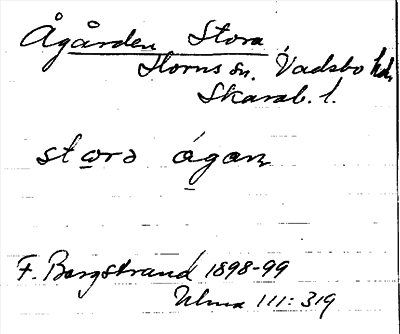 Ågården Stora
Horns sn. Vadsbo hd.
Skarab. l.
stora ågaṇ
F. Bergstrand 1898-99
Ulma 111:319